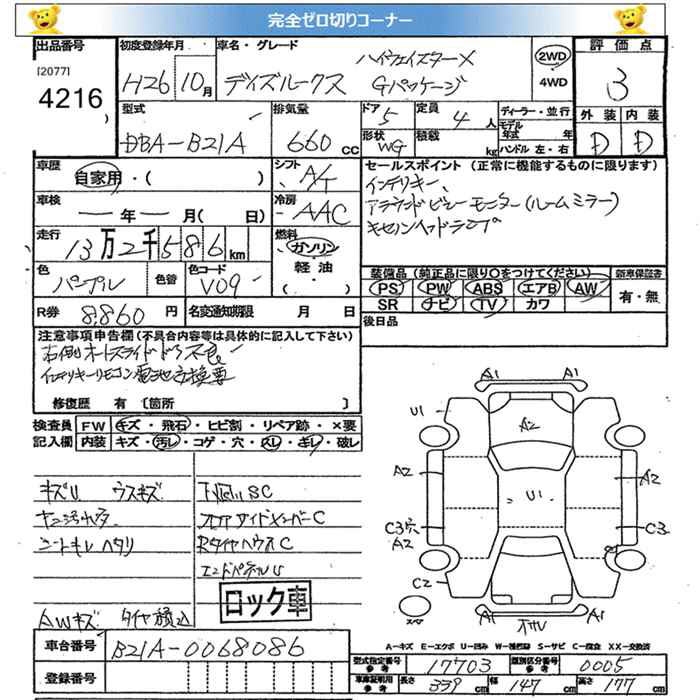 完全ゼロ切りコーナー
出品番号 初度登録年月 車名・グレード 2WD 4WD 評価点
[2077]
4216 H26 10月 デイズルークス ハイウェイスターX Gパッケージ 3
型式 排気量 ドア 定員 ディーラー・並行 外装 内装
DBA-B21A 660cc 5 4人 モデル年式 年 D D
形状 WG 積載 kg ハンドル 左・右
車歴 自家用・( ) シフト A4 セールスポイント(正常に機能するものに限ります)
インテリキー、
車検 年 月(日) 冷房 AAC アラウンドビューモニター(ルームミラー)
キセノンヘッドランプ
走行 13万2千586km 燃料 ガソリン 軽油・
色 パープル 色替 色コード V09 装備品(純正品に限り○をつけてください) 新車保証書
PS PW ABS エアB AW 有・無
SR ナビ TV カワ
R券 8,860円 名変通知期限 月 日 後日品
注意事項申告欄(不具合内容等は具体的に記入して下さい)
右側オートスライドドア不良
インテリキーリモコン電池交換要
修復歴 有〔箇所 〕
検査員 FW キズ・飛石・ヒビ割・リペア跡・×要
記入欄 内装 キズ・汚レ・コゲ・穴・スレ・キレ・破レ
A1 A1
U1 A2
A2 A2
U1
C3穴 C3
A2
C2
A1 A1
スペア
キズU ウスキズ
シートキレ ヘタリ
コアサイドメンバーC
RタイヤハウスC
エンドパネルU
AWキズ タイヤ減込
ロック車
A-キズ E-エクボ U-凹み W-補修跡 S-サビ C-腐食 XX-交換済
車台番号 B21A-0068086 型式指定番号 参考 17703 類別区分番号 参考 0005
登録番号 車庫証明用 参考 長さ 339cm 幅 147cm 高さ 177cm